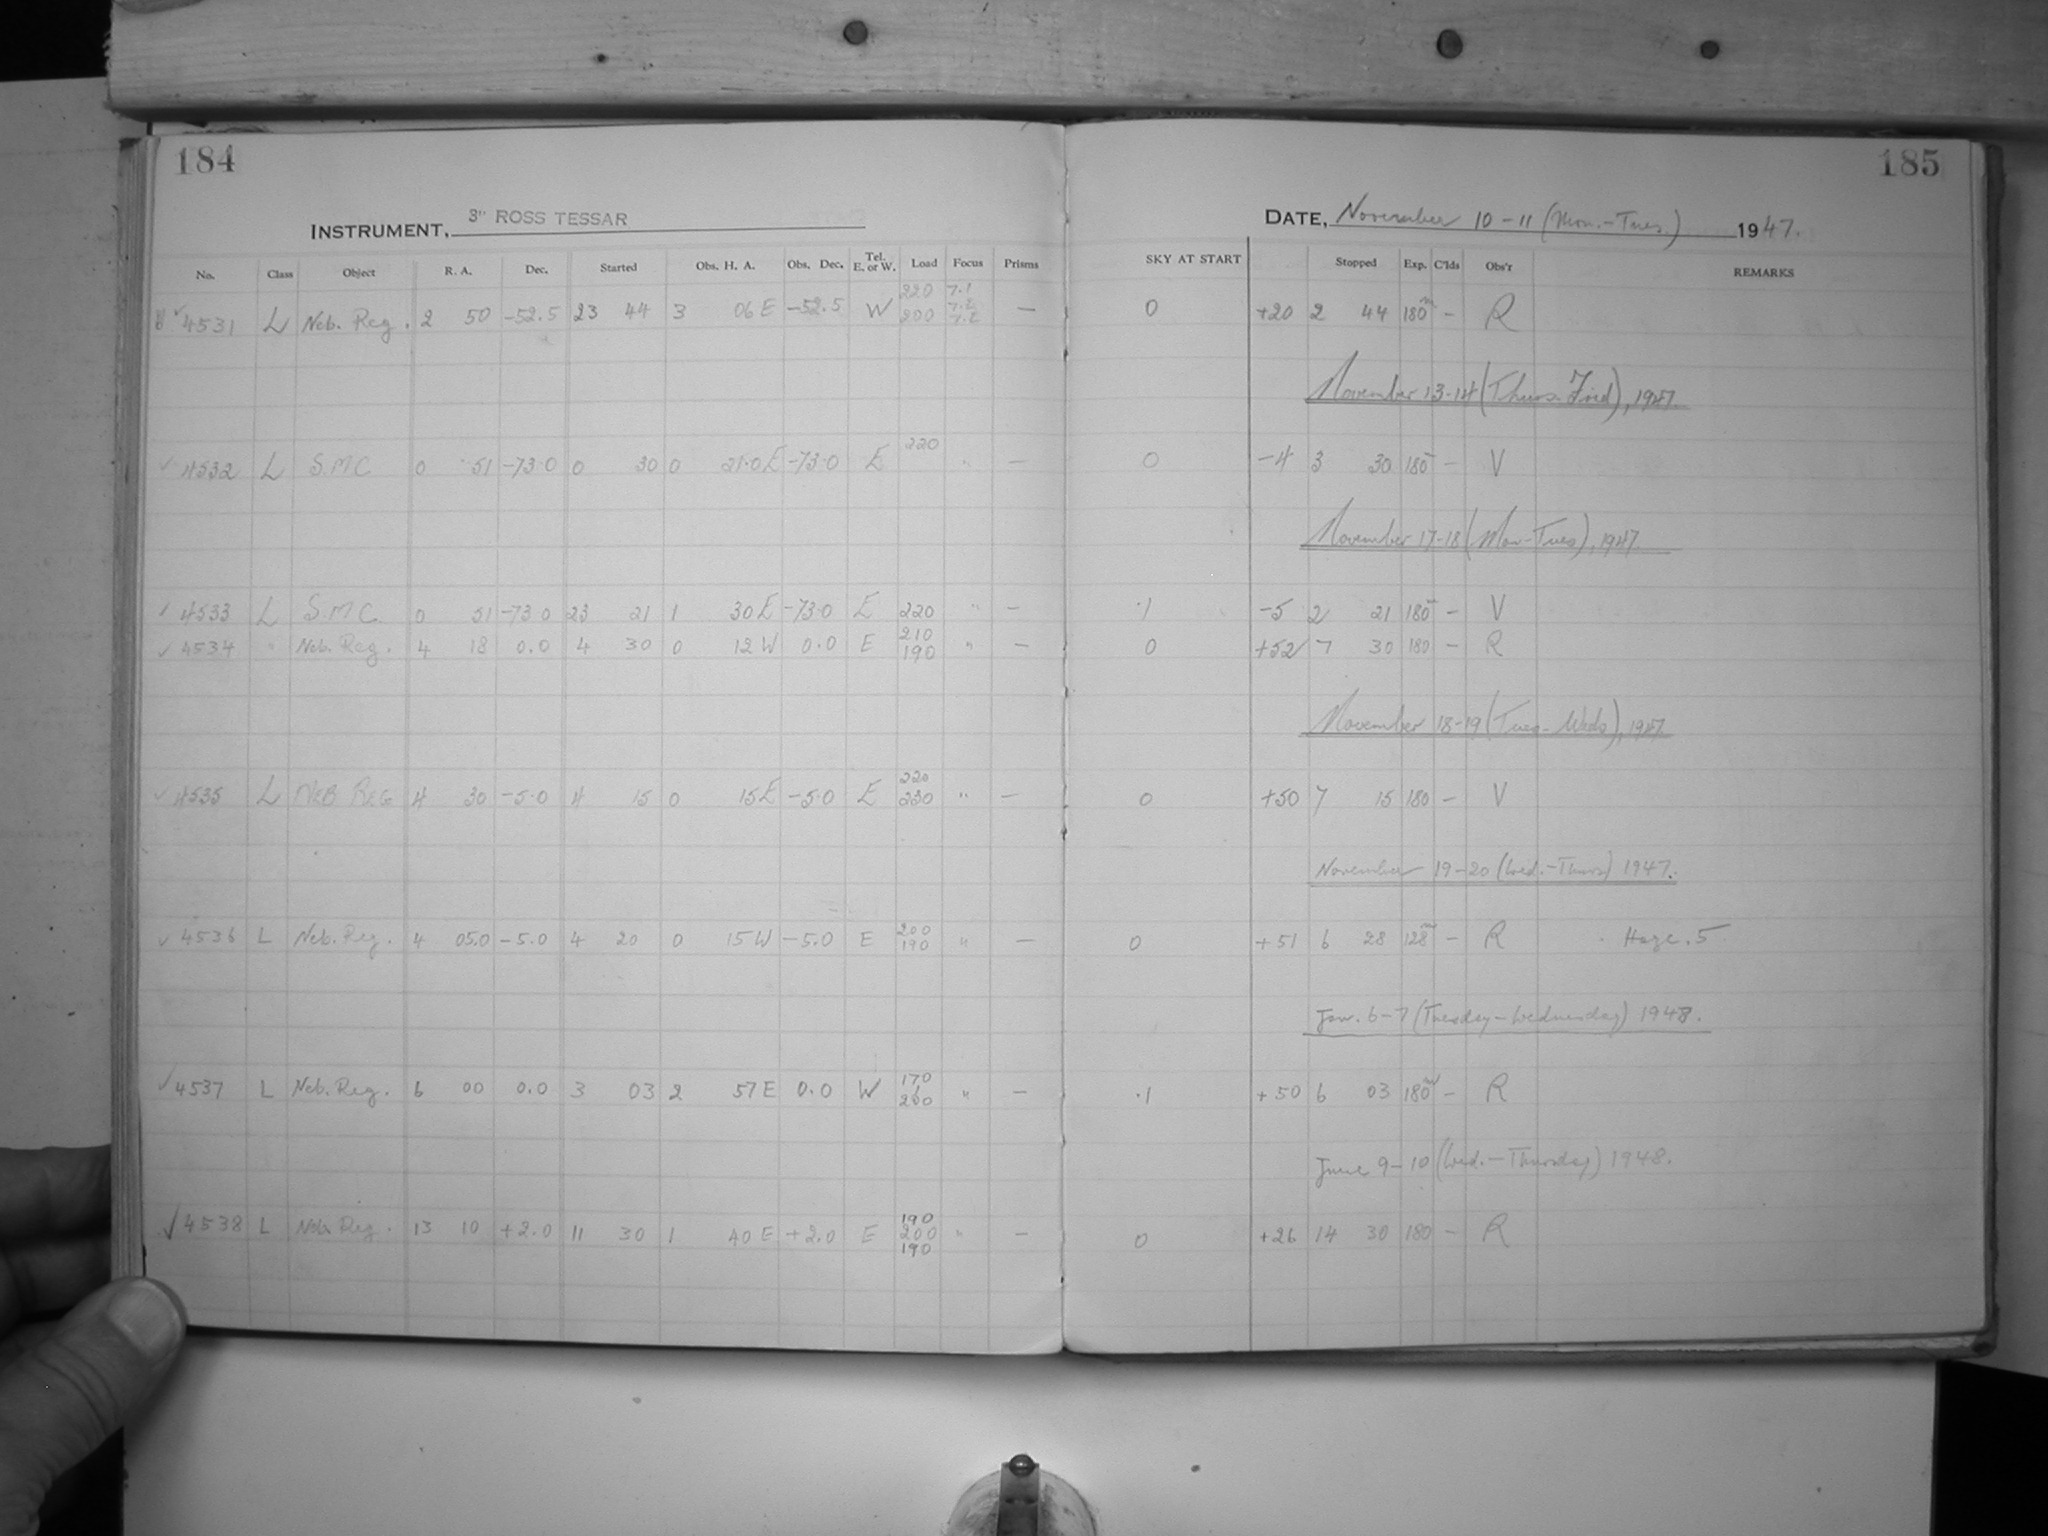 184
185
INSTRUMENT, 3" ROSS TESSAR
DATE, November 10-11 (Mon.-Tues.) 1947.
No. Class Object R. A. Dec. Started Obs. H. A. Obs. Dec. Tel. E. or W. Load Focus Prisms SKY AT START Stopped Exp. C'lds Obs'r REMARKS
✓ 4531 L Neb. Reg. 2 50 -52.5 23 44 3 06 E -52.5 W 220 200 7.1 7.2 7.2 — 0 +20 2 44 180m — R
November 13-14 (Thurs-Frid), 1947.
✓ 4532 L S.M.C 0 51 -73.0 0 30 0 21.0 E -73.0 E 220 " — 0 -4 3 30 180 — V
November 17-18 (Mon-Tues), 1947.
✓ 4533 L S.M.C. 0 51 -73.0 23 21 1 30 E -73.0 E 220 " — .1 -5 2 21 180 — V
✓ 4534 " Neb. Reg. 4 18 0.0 4 30 0 12 W 0.0 E 210 190 " — 0 +52 7 30 180 — R
November 18-19 (Tues-Weds), 1947.
✓ 4535 L NEB REG 4 30 -5.0 4 15 0 15 E -5.0 E 220 230 " — 0 +50 7 15 180 — V
November 19-20 (Wed.-Thurs) 1947.
✓ 4536 L Neb. Reg. 4 05.0 -5.0 4 20 0 15 W -5.0 E 200 190 " — 0 +51 6 28 128m — R Haze .5
Jan. 6-7 (Tuesday-Wednesday) 1948.
✓ 4537 L Neb. Reg. 6 00 0.0 3 03 2 57 E 0.0 W 170 200 " — .1 +50 6 03 180m — R
June 9-10 (Wed.-Thursday) 1948.
✓ 4538 L Neb. Reg. 13 10 +2.0 11 30 1 40 E +2.0 E 190 200 190 " — 0 +26 14 30 180 — R